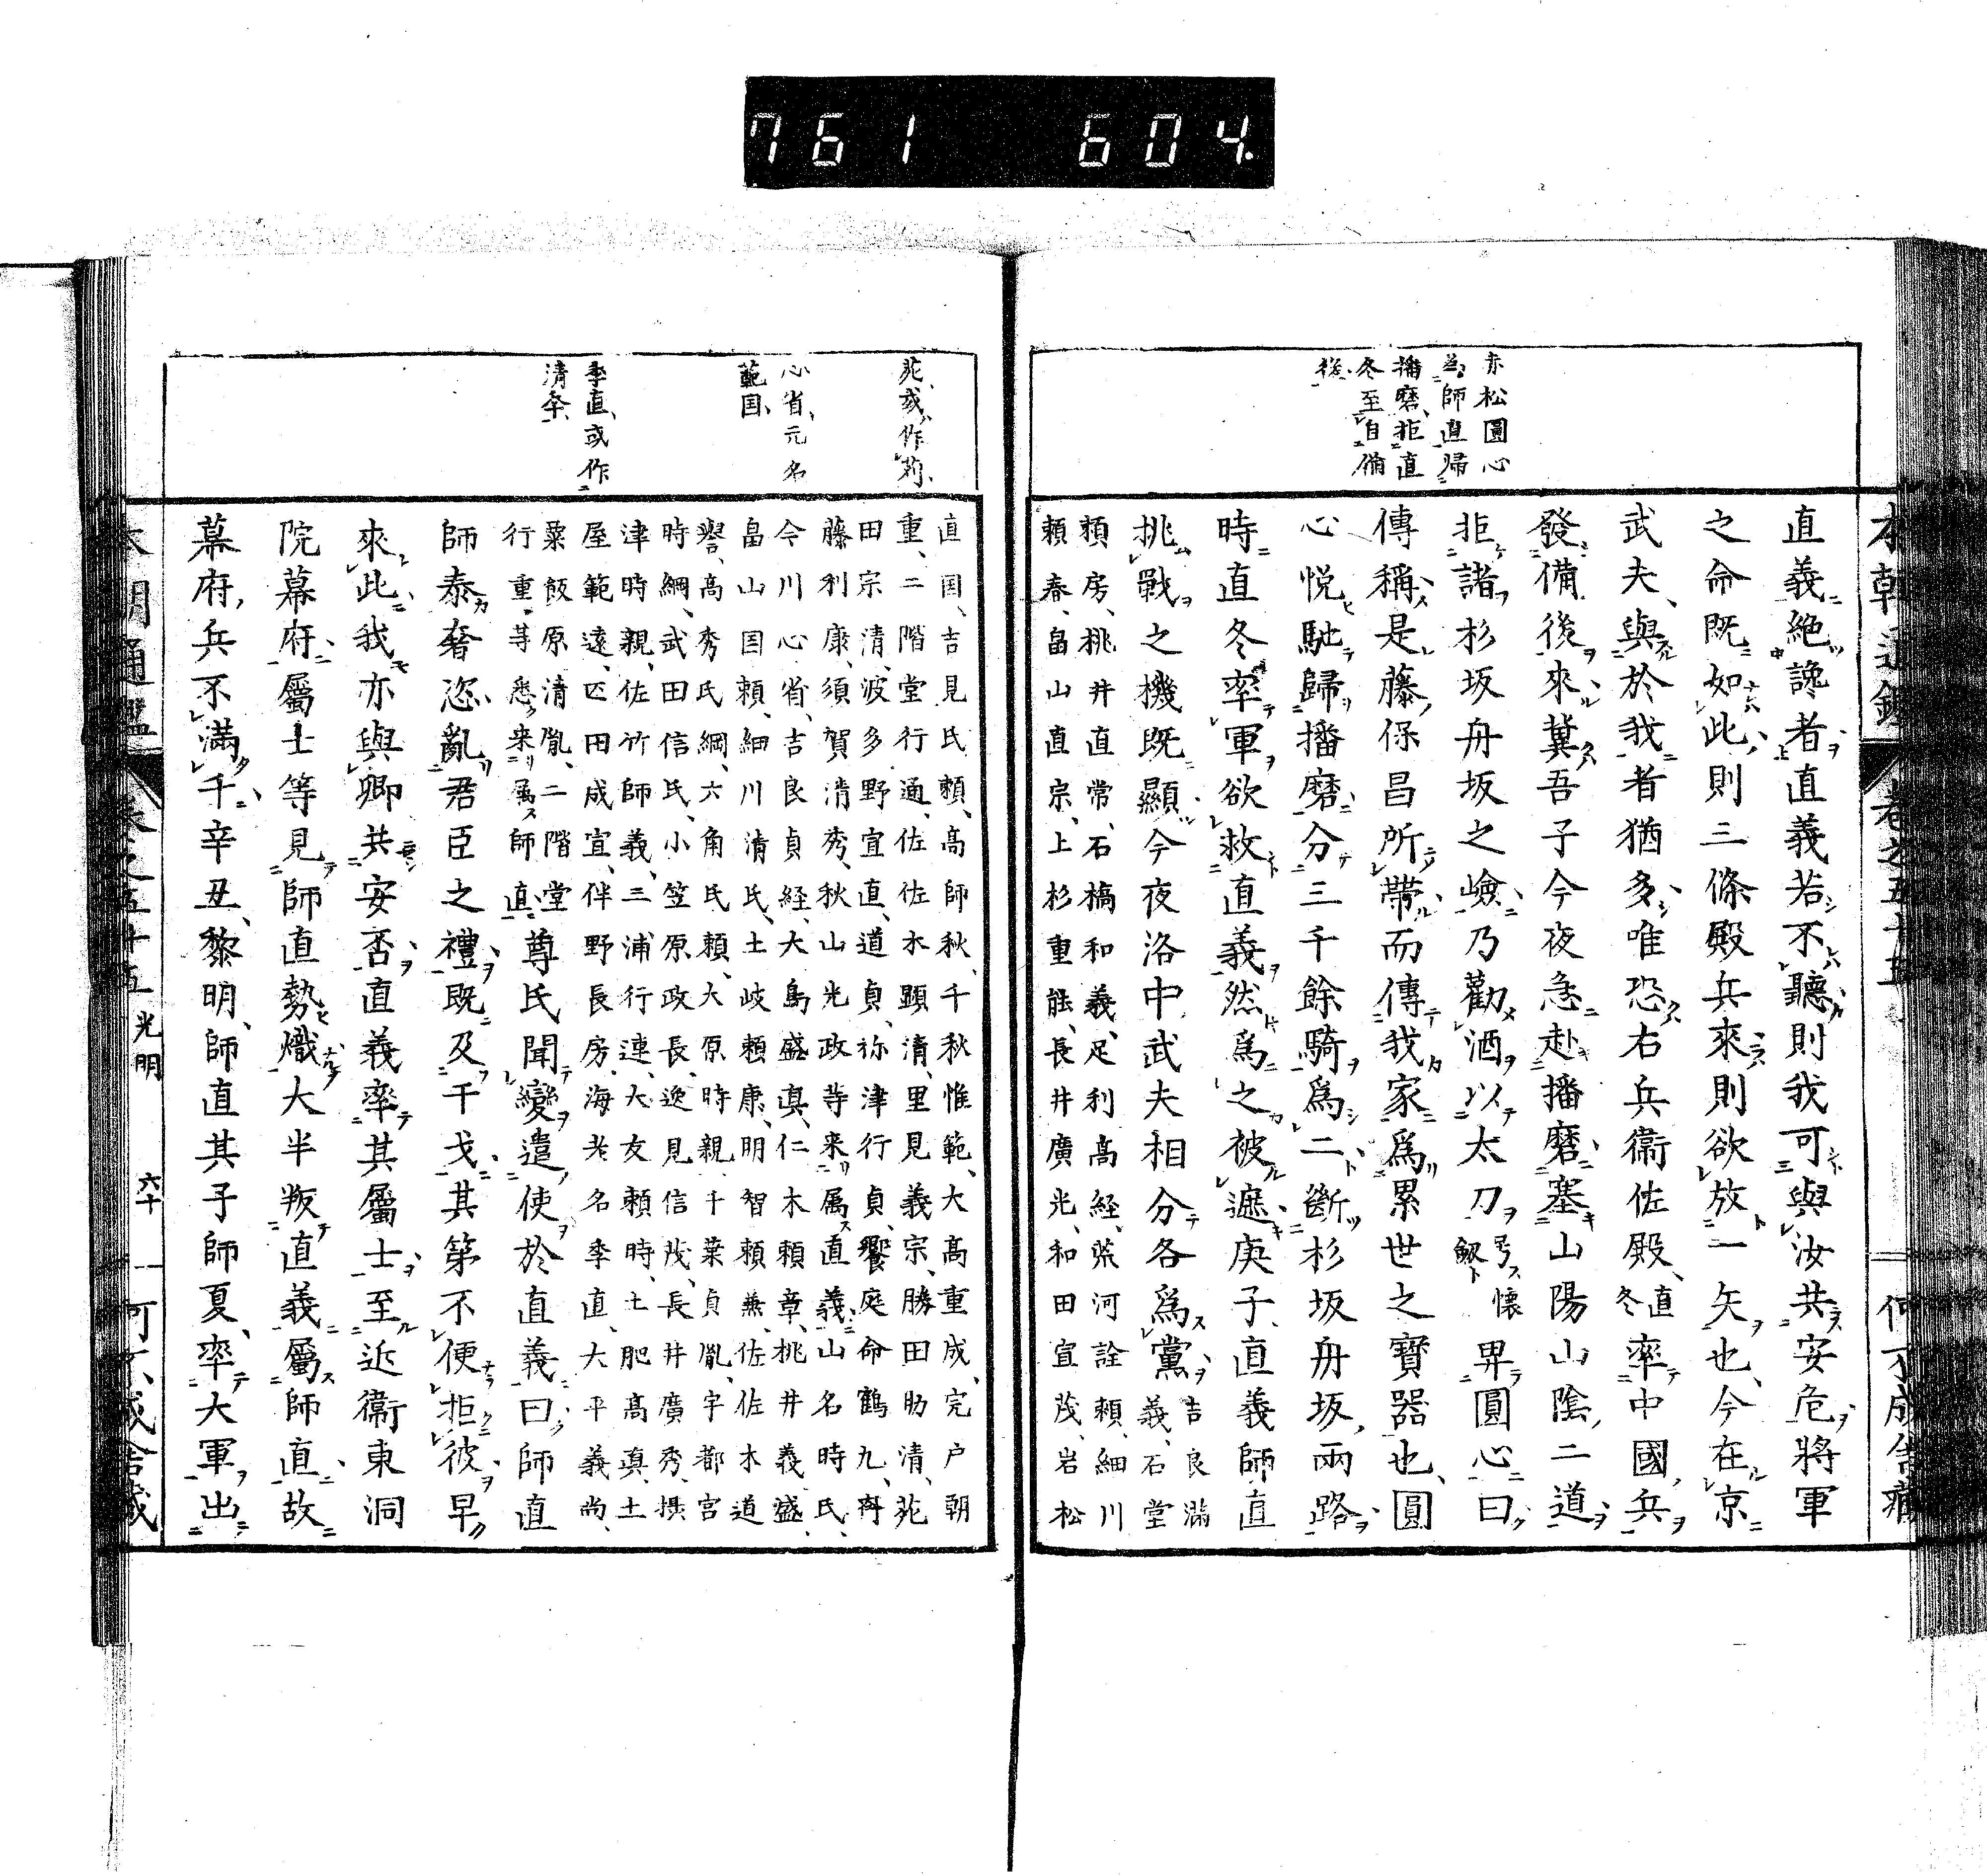 761 604.
本朝通鑑 卷之五十五
赤松圓心
為師直歸
播磨、拒直
冬至自備
後、
直義絶讒者直義若不聽則我可與汝共安危將軍
之命既如此則三條殿兵來則欲放一矢也今在京
武夫與於我者猶多唯恐右兵衞佐殿直冬率中國兵
發備後來冀吾子今夜急赴播磨塞山陽山陰二道
拒諸杉坂舟坂之嶮乃勸酒以太刀畀圓心曰
傳稱是藤保昌所帶而傳我家為累世之寶器也圓
心悦馳歸播磨分三千餘騎為二斷杉坂舟坂兩路
時直冬率軍欲救直義然為之被遮庚子直義師直
挑戰之機既顯今夜洛中武夫相分各為黨吉良滿義、石堂
頼房、桃井直常、石橋和義、足利高経、荒河詮頼、細川
頼春、畠山直宗、上杉重能、長井廣光、和田宣茂、岩松
苑、或作苅、
心省、元名
範国、
季直、或作
清奉、
直国、吉見氏頼、高師秋、千秋惟範、大高重成、完戸朝
重、二階堂行通、佐佐木顕清、里見義宗、勝田助清、苑
田宗清、波多野宣直、道貞、祢津行貞、饗庭命鶴九、
藤利康、須賀清秀、秋山光政等来属直義、山名時氏、
今川心省、吉良貞経、大島盛真、仁木頼章、桃井義盛、
畠山国頼、細川清氏、土岐頼康、明智頼兼、佐佐木道
譽、高秀氏綱、六角氏頼、大原時親、千葉貞胤、宇都宮
時綱、武田信氏、小笠原政長、逸見信茂、長井廣秀、摂
津時親、佐竹師義、三浦行連、大友頼時、土肥高真、土
屋範遠、疋田成宣、伴野長房、海老名季直、大平義尚、
粟飯原清胤、二階堂
行重等悉来属師直、尊氏聞變遣使於直義曰師直
師泰奢恣亂君臣之禮既及干戈其第不便拒彼早
來此我亦與卿共安否直義率其屬士至近衞東洞
院幕府屬士等見師直勢熾大半叛直義屬師直故
幕府兵不滿千辛丑黎明師直其子師夏率大軍出
光明 六十